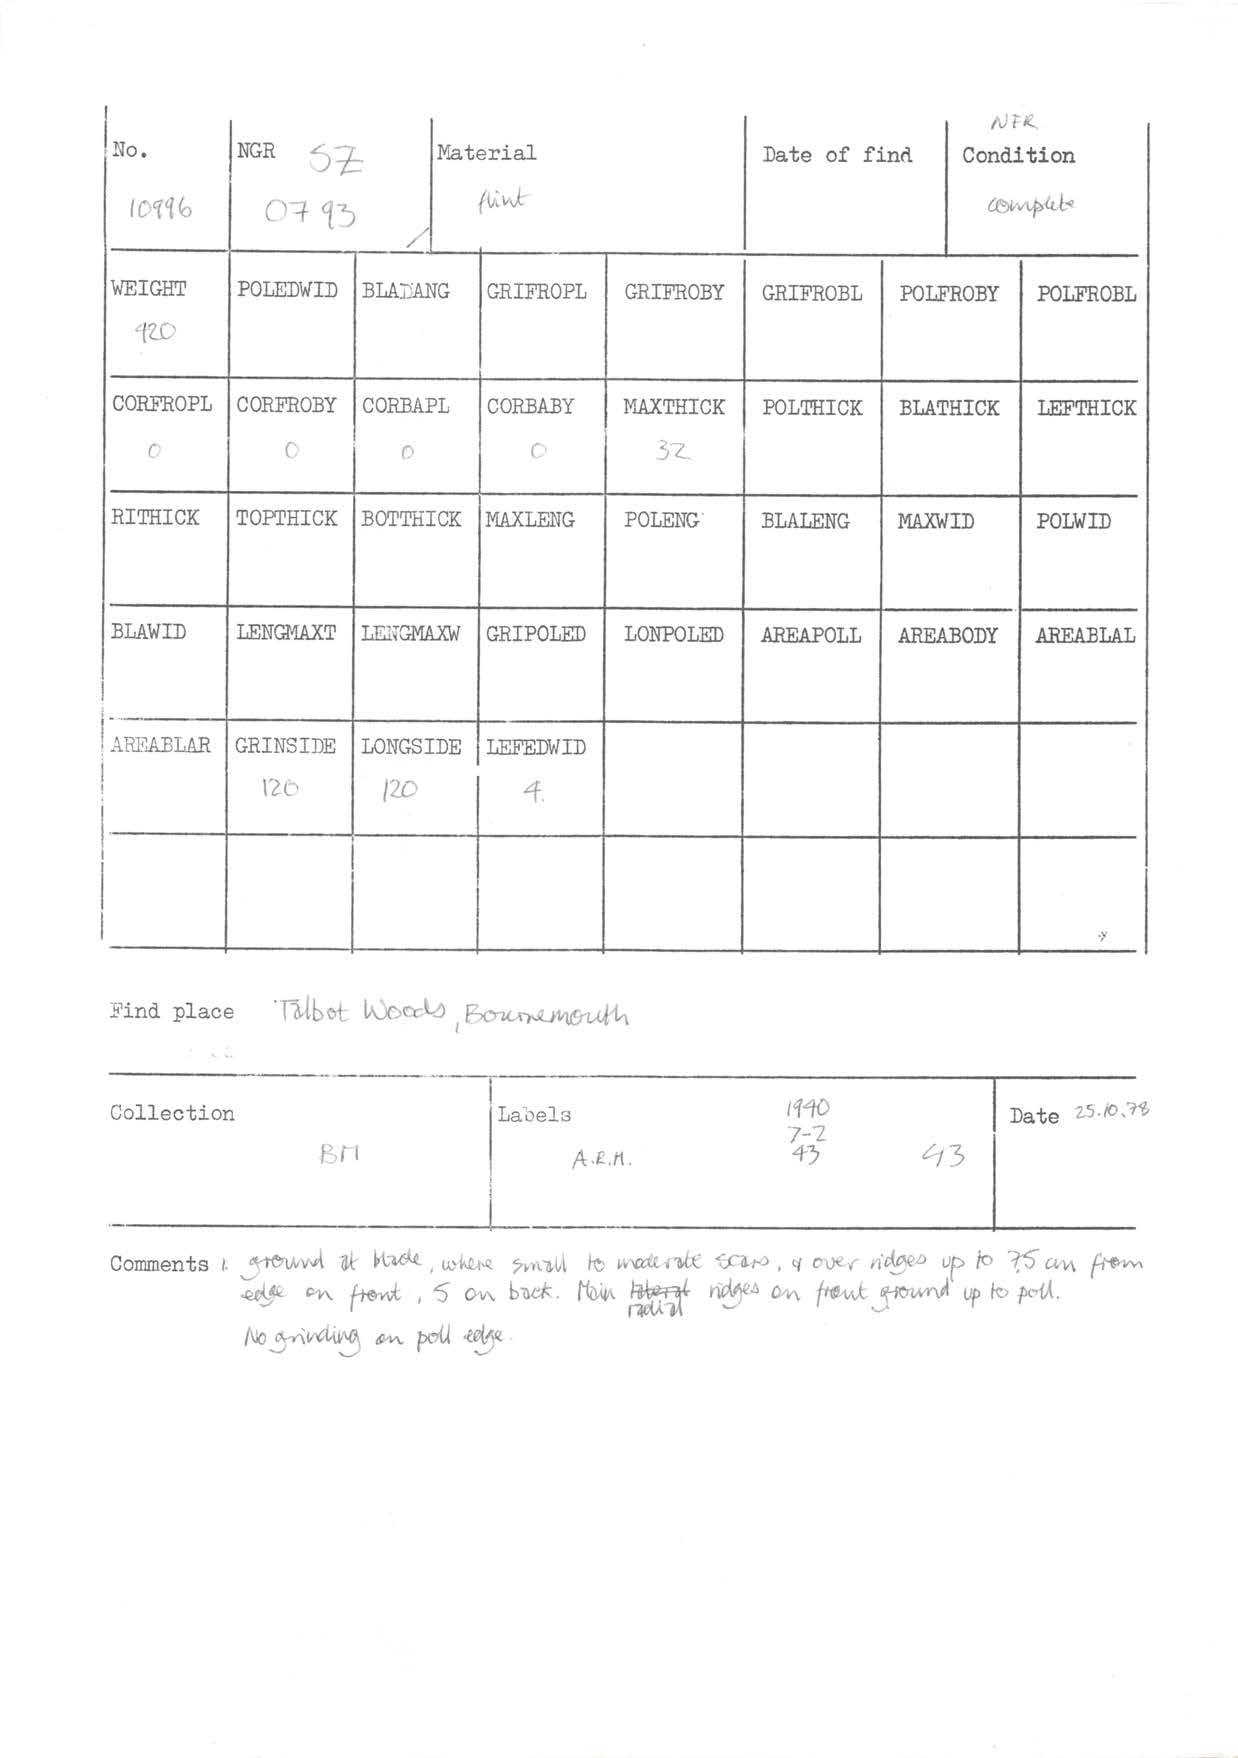 NFR
No. NGR SZ Material Date of find Condition
10996 0793 flint complete
WEIGHT POLEDWID BLADANG GRIFROPL GRIFROBY GRIFROBL POLFROBY POLFROBL
420
CORFROPL CORFROBY CORBAPL CORBABY MAXTHICK POLTHICK BLATHICK LEFTHICK
0 0 0 0 32
RITHICK TOPTHICK BOTTHICK MAXLENG POLENG BLALENG MAXWID POLWID
BLAWID LENGMAXT LENGMAXW GRIPOLED LONPOLED AREAPOLL AREABODY AREABLAL
AREABLAR GRINSIDE LONGSIDE LEFEDWID
120 120 4.
Find place Talbot Woods, Bournemouth
Collection Labels 1940 Date 25.10.78
7-2
BM A.R.M. 43 43
Comments 1. ground at blade, where small to moderate scars, & over ridges up to 7.5 cm from
edge on front, 5 on back. Main lateral ridges on front ground up to poll.
radial
No grinding on poll edge.